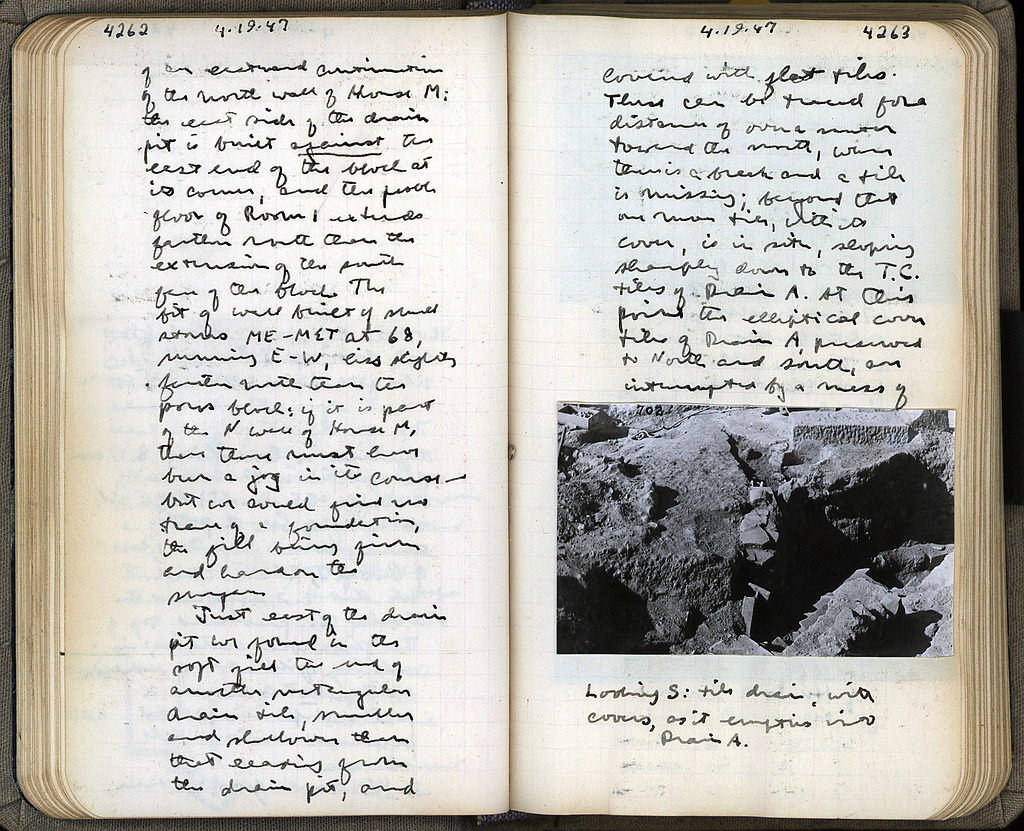 4262
4.19.47
of an eastward continuation
of the north wall of House M:
the east side of the drain
pit is built against the
east end of the block at
its corner, and the pebble
floor of Room 1 extends
farther north than the
extension of the south
face of the block. The
bit of wall built of small
stones ME-MET at 68,
running E-W, lies slightly
farther north than the
poros block: if it is part
of the N wall of House M,
then there must have
been a jog in its course—
but we could find no
trace of a foundation,
the fill being firm
and hard on the
surface.
Just east of the drain
pit we found in the
soft fill the end of
another rectangular
drain tile, smaller
and shallower than
that leading from
the drain pit, and
4.19.47
4263
covered with flat tiles.
These can be traced for a
distance of over a meter
toward the north, where
there is a break and a tile
is missing; beyond that
one more tile, with its
cover, is in situ, sloping
sharply down to the T.C.
tiles of Drain A. At this
point the elliptical cover
tiles of Drain A, preserved
to North and south, are
interrupted by a mass of
702
Looking S: tile drain, with
covers, as it empties into
Drain A.